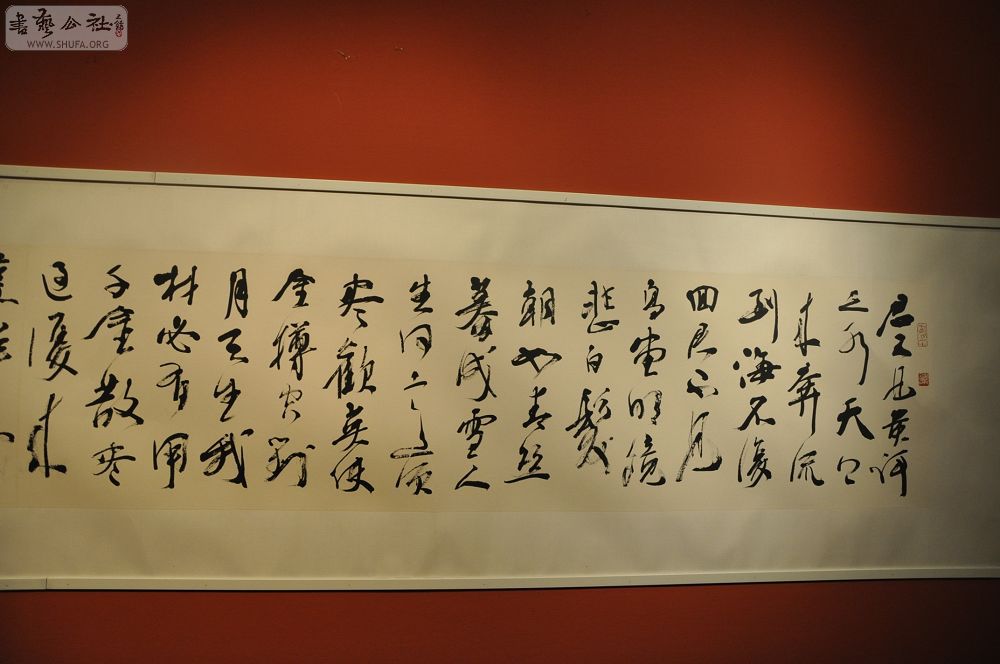 書藝公社
WWW.SHUFA.ORG
君不見黃河
之水天上
来奔流
到海不復
回君不見
高堂明鏡
悲白髮
朝如青丝
暮成雪人
生得意須
尽歡莫使
金樽空對
月天生我
材必有用
千金散尽
還復来